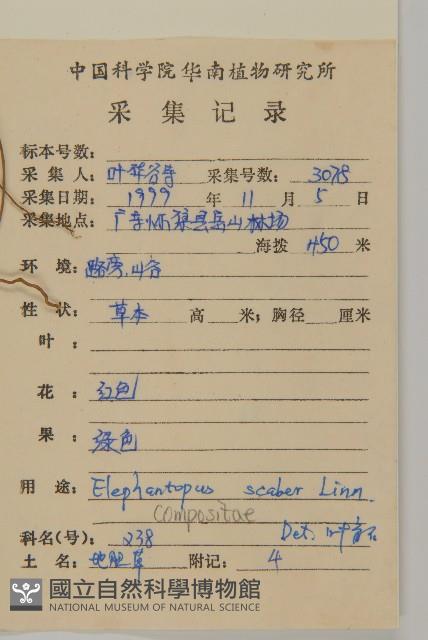 中国科学院华南植物研究所
采集记录
标本号数：
采集人：叶华谷等 采集号数：3078
采集日期：1999 年 11 月 5 日
采集地点：广东怀集县岳山林场
海拨 450 米
环境：路旁,山谷
性状：草本 高 米；胸径 厘米
叶：
花：红色
果：绿色
用途：Elephantopus scaber Linn.
Compositae
科名(号)：238 Det. 叶
土名：地胆草 附记：4
國立自然科學博物館
NATIONAL MUSEUM OF NATURAL SCIENCE